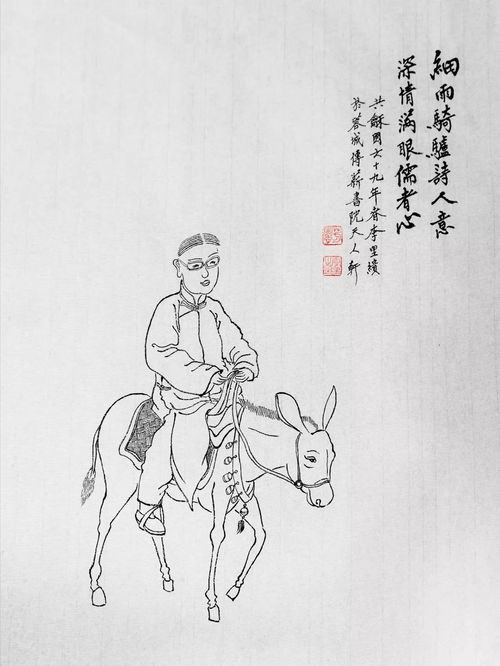 細雨騎驢詩人意
深情滿眼儒者心
共龢國六十九年春李里繢
於蓉城傳薪書院天人軒